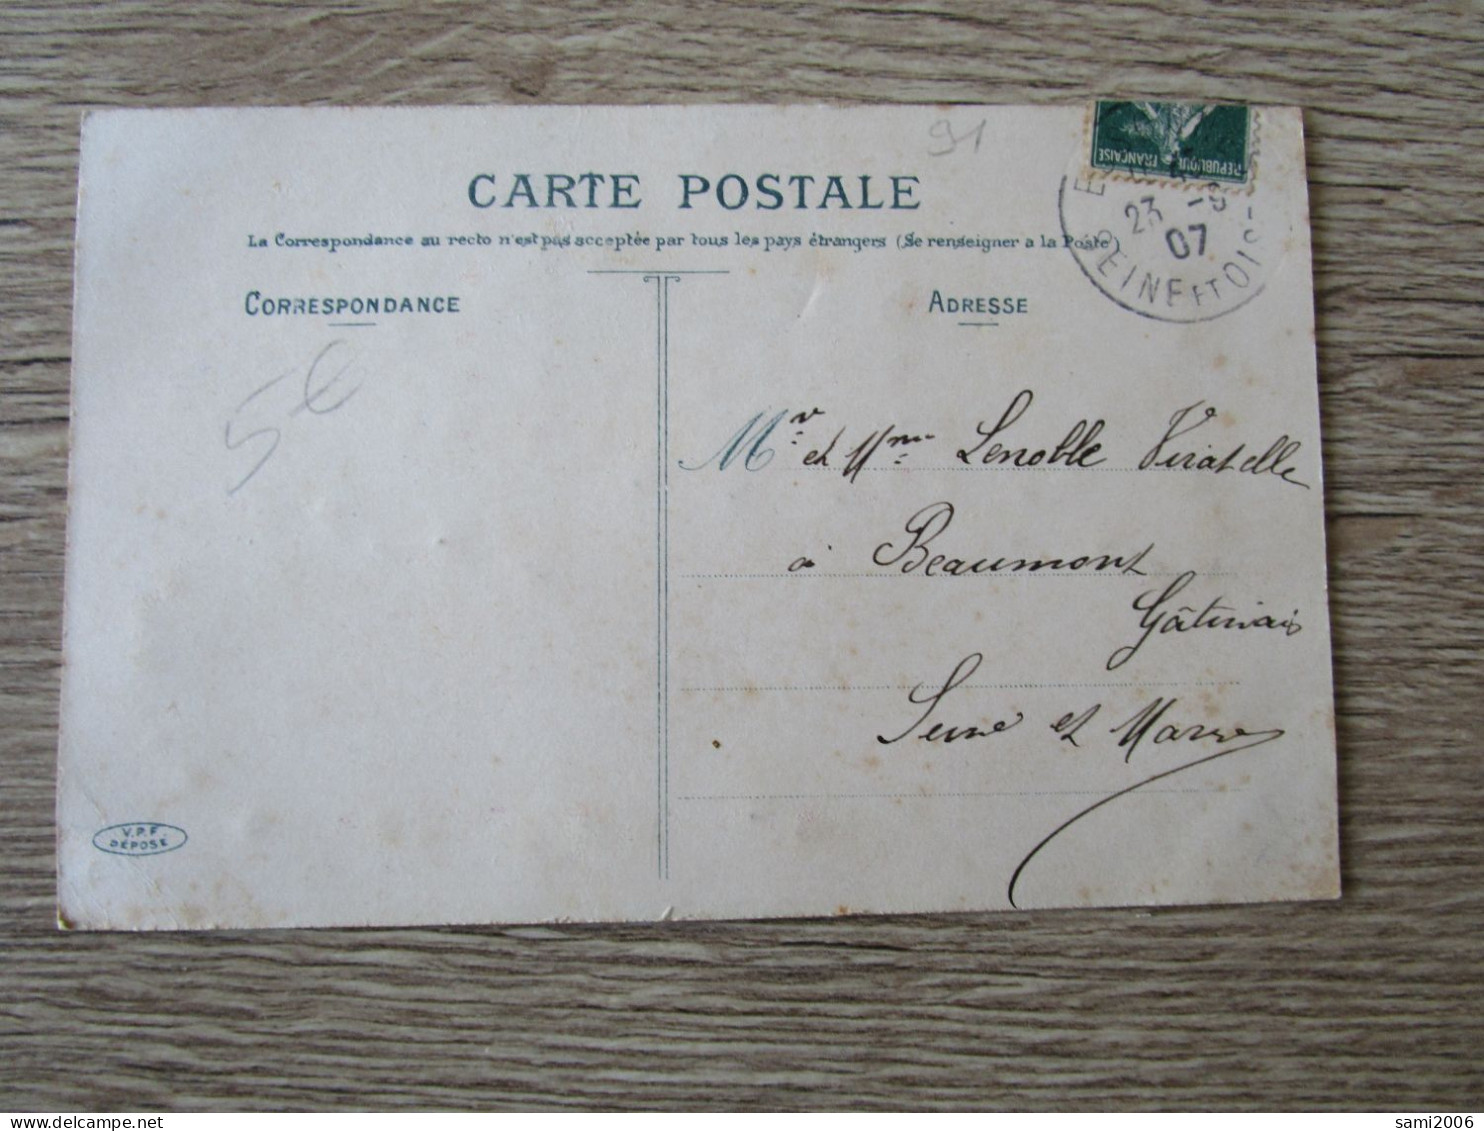 91
RÉPUBLIQUE FRANÇAISE
CARTE POSTALE
La Correspondance au recto n'est pas acceptée par tous les pays étrangers (Se renseigner a la Poste)
23
07
SEINE ET OISE
CORRESPONDANCE
ADRESSE
5€
Mr et Mme Lenoble Viratelle
à Beaumont
Gâtinais
Seine et Marne
V.P.F.
DÉPOSÉ
sami2006